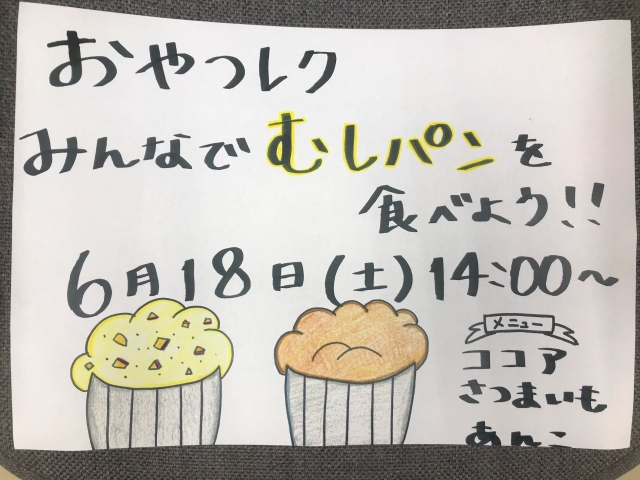 おやつレク
みんなでむしパンを
食べよう!!
6月18日(土)14:00～
メニュー
ココア
さつまいも
あんこ